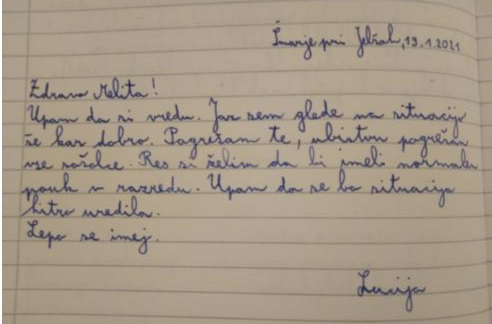 Šmarje pri Jelšah, 13.1.2021
Zdravo Melita!
Upam da si vredu. Jaz sem glede na situacijo
še kar dobro. Pogrešam te, bistvu pogrešam
vse sošolce. Res si želim da bi imeli normalen
pouk v razredu. Upam da se bo situacija
hitro uredila.
Lepo se imej.
Lucija